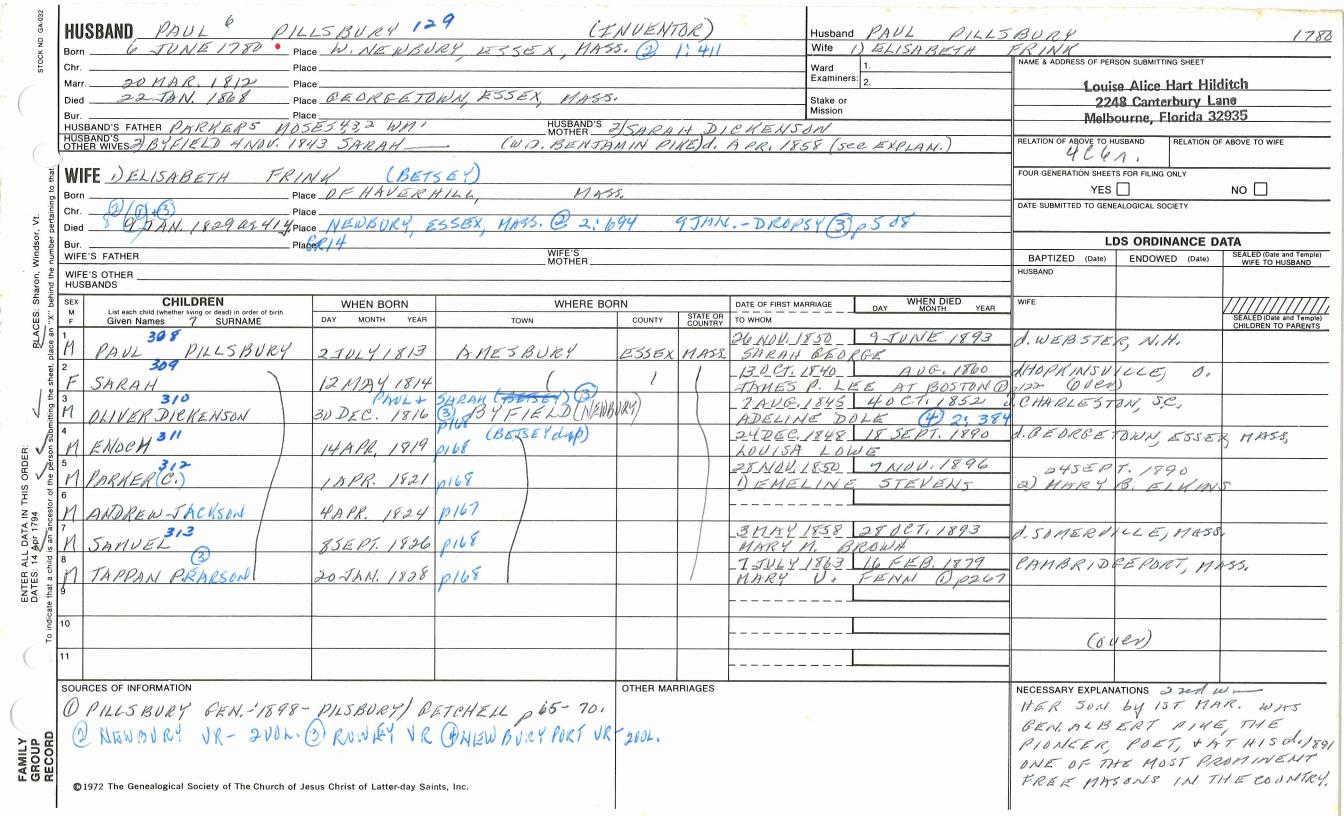 HUSBAND PAUL 6 PILLSBURY 129 (INVENTOR)
Born 6 JUNE 1780 Place W. NEWBURY, ESSEX, MASS. ② 1:411
Chr. Place
Marr. 20 MAR. 1812 Place
Died 22 JAN. 1868 Place GEORGETOWN, ESSEX, MASS.
Bur. Place
HUSBAND'S FATHER PARKER5 MOSES4,3,2 WM1 HUSBAND'S MOTHER 2) SARAH DICKENSON
HUSBAND'S OTHER WIVES 2) BYFIELD 4 NOV. 1843 SARAH (WD. BENJAMIN PIKE) d. APR. 1858 (see EXPLAN.)
Husband PAUL PILLSBURY 1780
Wife 1) ELISABETH FRINK
Ward Examiners: 1.
2.
Stake or Mission
NAME & ADDRESS OF PERSON SUBMITTING SHEET
Louise Alice Hart Hilditch
2248 Canterbury Lane
Melbourne, Florida 32935
RELATION OF ABOVE TO HUSBAND RELATION OF ABOVE TO WIFE
FOUR GENERATION SHEETS FOR FILING ONLY
YES NO
DATE SUBMITTED TO GENEALOGICAL SOCIETY
WIFE 1) ELISABETH FRINK (BETSEY)
Born Place OF HAVERHILL, MASS.
Chr. ② ① + ③ Place
Died 9 JAN. 1829 ae 41y Place NEWBURY, ESSEX, MASS. ② 2:694 9 JAN. - DROPSY ③ p508
Bur. Place GR14
WIFE'S FATHER WIFE'S MOTHER
WIFE'S OTHER HUSBANDS
LDS ORDINANCE DATA
BAPTIZED (Date) ENDOWED (Date) SEALED (Date and Temple) WIFE TO HUSBAND
HUSBAND
WIFE
SEALED (Date and Temple) CHILDREN TO PARENTS
SEX M F CHILDREN WHEN BORN WHERE BORN DATE OF FIRST MARRIAGE WHEN DIED
List each child (whether living or dead) in order of birth
Given Names 7 SURNAME DAY MONTH YEAR TOWN COUNTY STATE OR COUNTRY TO WHOM DAY MONTH YEAR
308 26 NOV. 1850 9 JUNE 1893
1 M PAUL PILLSBURY 2 JULY 1813 AMESBURY ESSEX MASS SARAH GEORGE d. WEBSTER, N.H.
309 13 OCT. 1840 AUG. 1860 d HOPKINSVILLE, O.
2 F SARAH 12 MAY 1814 JAMES P. LEE AT BOSTON ① p122 (over)
310 PAUL + SARAH (BETSEY) ③ 7 AUG. 1845 4 OCT. 1852 d CHARLESTON, S.C.
3 M OLIVER DICKENSON 30 DEC. 1816 ③ BYFIELD (NEWBURY) p168 ADELINE DOLE ④ 2:384
311 (BETSEY dup) 24 DEC. 1848 18 SEPT. 1890 d. GEORGETOWN, ESSEX, MASS,
4 M ENOCH 14 APR. 1819 p168 LOUISA LOWE
312 28 NOV. 1850 7 NOV. 1896 24 SEPT. 1890
5 M PARKER (C.) 1 APR. 1821 p168 1) EMELINE STEVENS 2) MARY B. ELKINS
6 M ANDREW JACKSON 4 APR. 1824 p167
313 3 MAY 1858 28 OCT. 1893 d. SOMERVILLE, MASS.
7 M SAMUEL 8 SEPT. 1826 p168 MARY M. BROWN
③ 7 JULY 1863 16 FEB. 1879 CAMBRIDGEPORT, MASS.
8 M TAPPAN PEARSON 20 JAN. 1828 p168 MARY V. FENN ① p267
9
10 (over)
11
SOURCES OF INFORMATION
① PILLSBURY GEN.-1898- PILSBURY/ GETCHELL p 65-70.
② NEWBURY VR- 2 VOL. ③ ROWLEY VR ④ NEWBURYPORT VR- 2 VOL.
©1972 The Genealogical Society of The Church of Jesus Christ of Latter-day Saints, Inc.
OTHER MARRIAGES
NECESSARY EXPLANATIONS 2nd w
HER SON by 1ST MAR. WAS
GEN. ALBERT PIKE, THE
PIONEER, POET, + AT HIS d. 1891
ONE OF THE MOST PROMINENT
FREE MASONS IN THE COUNTRY.
STOCK NO. GA/032
ENTER ALL DATA IN THIS ORDER:
DATES: 14 Apr 1794 PLACES: Sharon, Windsor, Vt.
To indicate that a child is an ancestor of the person submitting the sheet, place an "X" behind the number pertaining to that
FAMILY GROUP RECORD